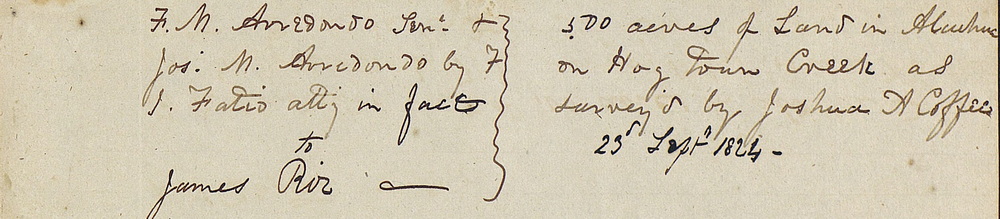 F. M. Arredondo Senr. &
Jos. M. Arredondo by F
J. Fatio atty in fact
to
James Riz
500 acres of Land in Alachua
on Hog Town Creek as
survey'd by Joshua A Coffee
23d Septr 1824 -